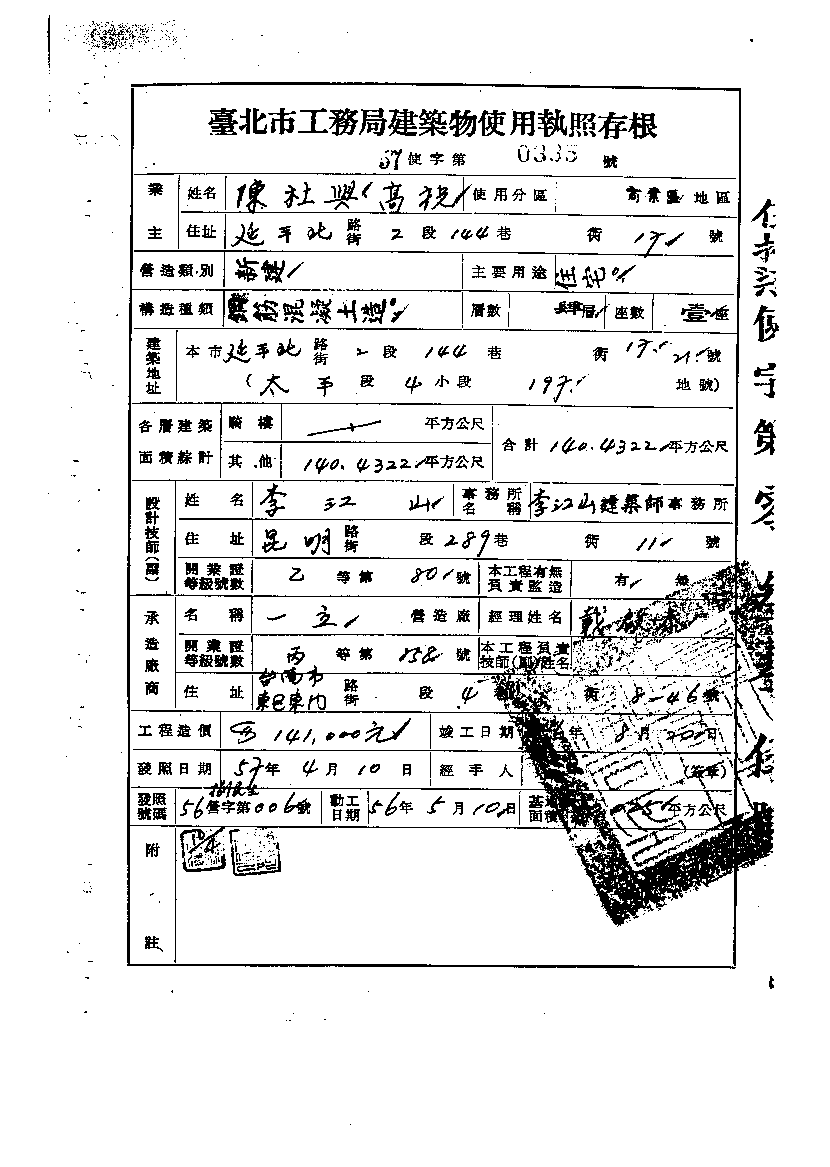 臺北市工務局建築物使用執照存根
57使字第 0335 號
業主 姓名 陳社興 高 使用分區 商業區 地區
住址 延平北 路街 2 段 144 巷 街 17 號
營造類別 新建 主要用途 住宅
構造種類 鋼筋混凝土造 層數 肆層 座數 壹座
建築地址 本市延平北 路街 2 段 144 巷 街 17. 21. 號
(太平 段 4 小段 197. 地號)
各層建築面積綜計 騎樓 平方公尺 合計 140.4322 平方公尺
其他 140.4322 平方公尺
設計技師(副) 姓名 李江山 事務所名稱 李江山建築師事務所
住址 昆明 路街 段 289 巷 街 11 號
開業證等級號數 乙 等第 801 號 本工程有無負責監造 有 無
承造廠商 名稱 一立 營造廠 經理姓名 戴
開業證等級號數 丙 等第 858 號 本工程負責技師(副)姓名
住址 台南市東區東門 路街 段 4 街 8-46 號
工程造價 141,000元 竣工日期 年 8 月 20 日
發照日期 57年 4 月 10 日 經手人 (簽章)
發照號碼 56營字第006號 動工日期 56年 5 月 10日 基地面積 平方公尺
附註